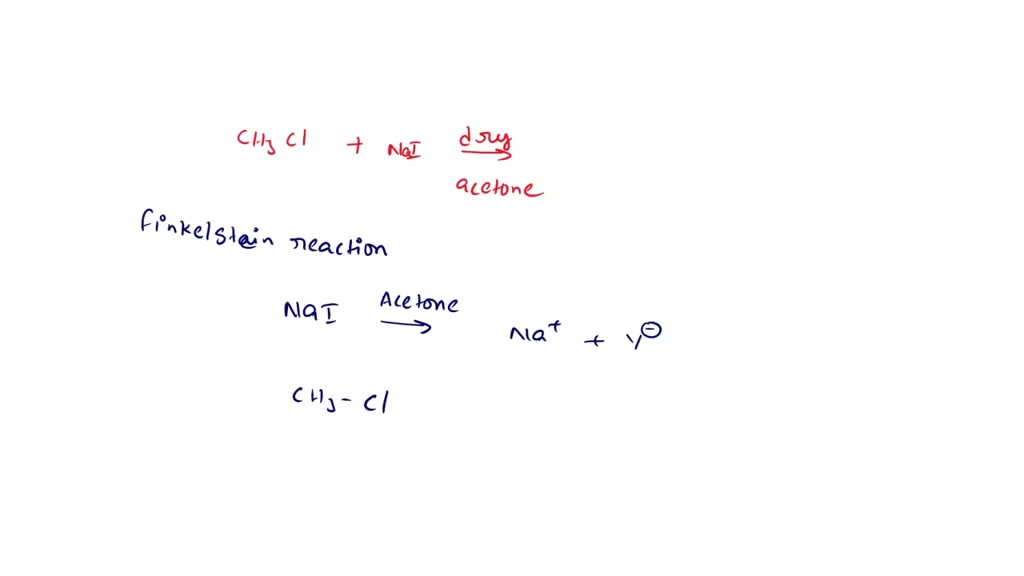 CH3 Cl + NaI dry
acetone
finkelstain reaction
NaI Acetone
Na+ +
CH3 - Cl